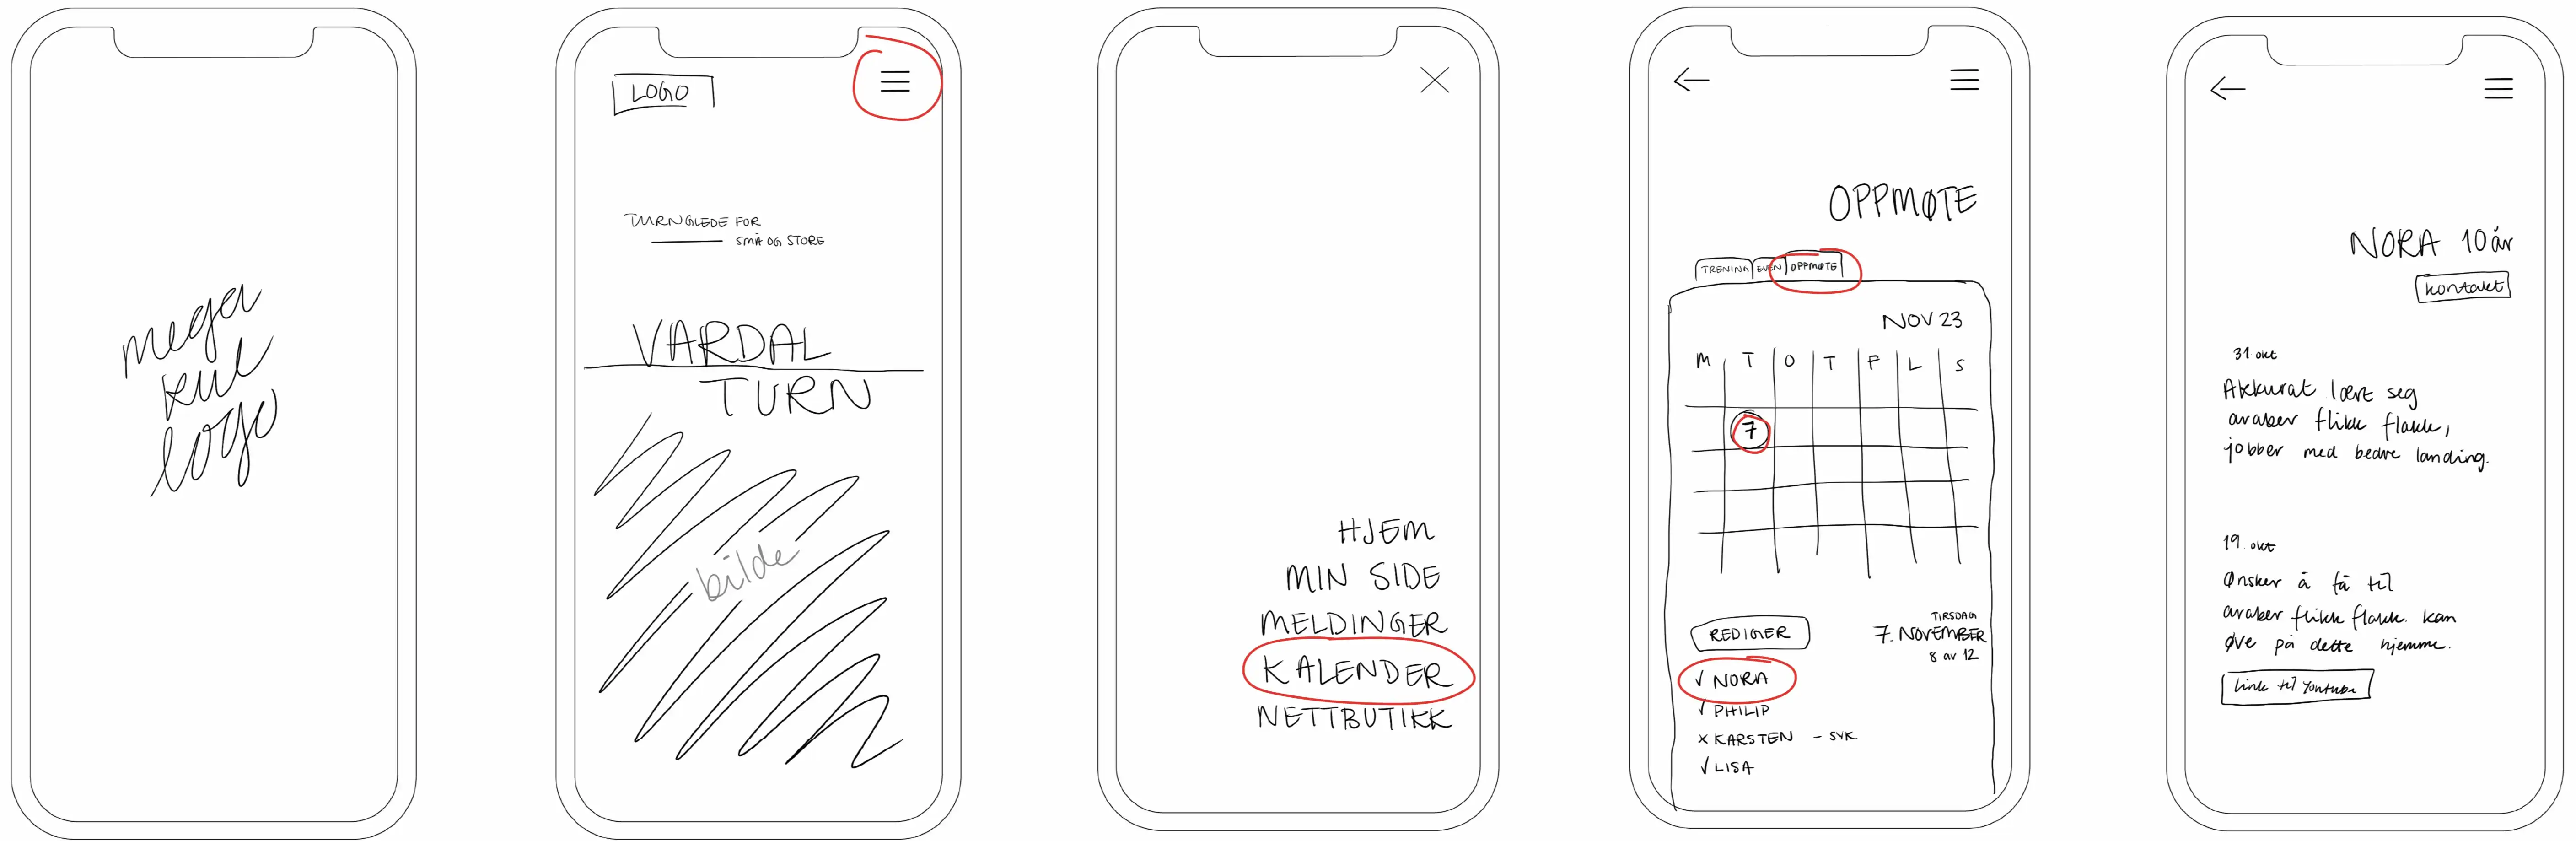 mega
kul
logo
LOGO
TURNGLEDE FOR
SMÅ OG STORE
VARDAL
TURN
bilde
HJEM
MIN SIDE
MELDINGER
KALENDER
NETTBUTIKK
OPPMØTE
TRENING EVEN OPPMØTE
NOV 23
M T O T F L S
7
REDIGER
TIRSDAG
7. NOVEMBER
8 av 12
✓ NORA
✓ PHILIP
x KARSTEN - SYK
✓ LISA
NORA 10 år
kontakt
31. okt
Akkurat lært seg
araber flikk flakk,
jobber med bedre landing.
19. okt
Ønsker å få til
araber flikk flakk. kan
øve på dette hjemme.
Link til Youtube